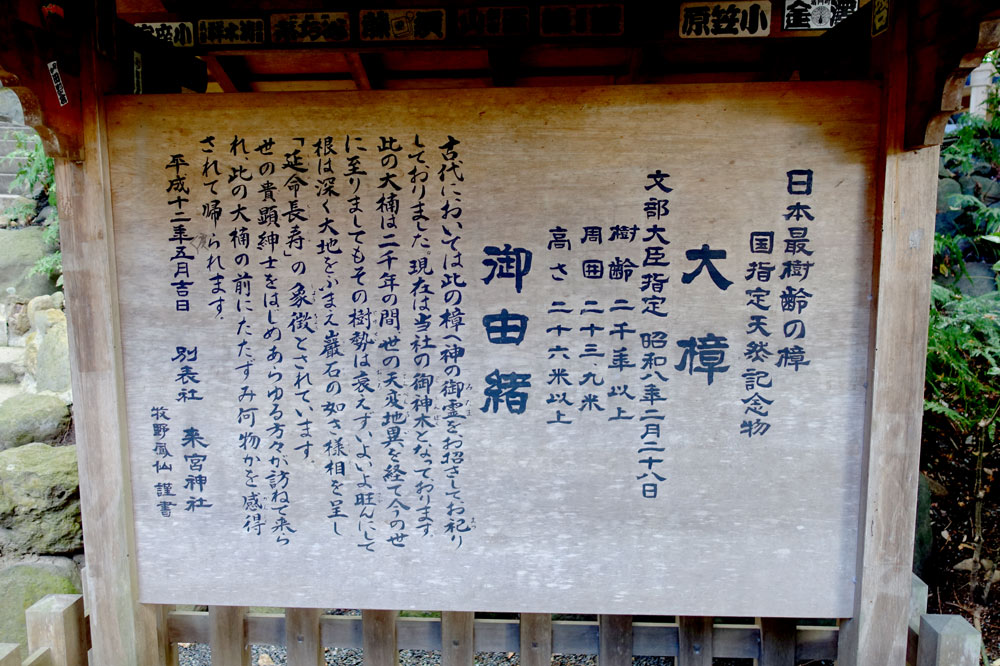 日本最樹齢の樟
国指定天然記念物
大樟
文部大臣指定 昭和八年二月二十八日
樹齢 二千年以上
周囲 二十三、九米
高さ 二十六米以上
御由緒
古代においては此の樟へ神の御霊をお招きして、お祀り
しておりました。現在は当社の御神木となっております。
此の大楠は二千年の間、世の天変地異を経て今の世
に至りましてもその樹勢は衰えずいよいよ旺んにして
根は深く大地をふまえ巌石の如き様相を呈し
「延命長寿」の象徴とされています。
世の貴顕紳士をはじめあらゆる方々が訪ねて来ら
れ、此の大楠の前にたたずみ何物かを感得
されて帰られます。
平成十二年五月吉日
別表社 来宮神社
牧野鳳仙 謹書
小笠原